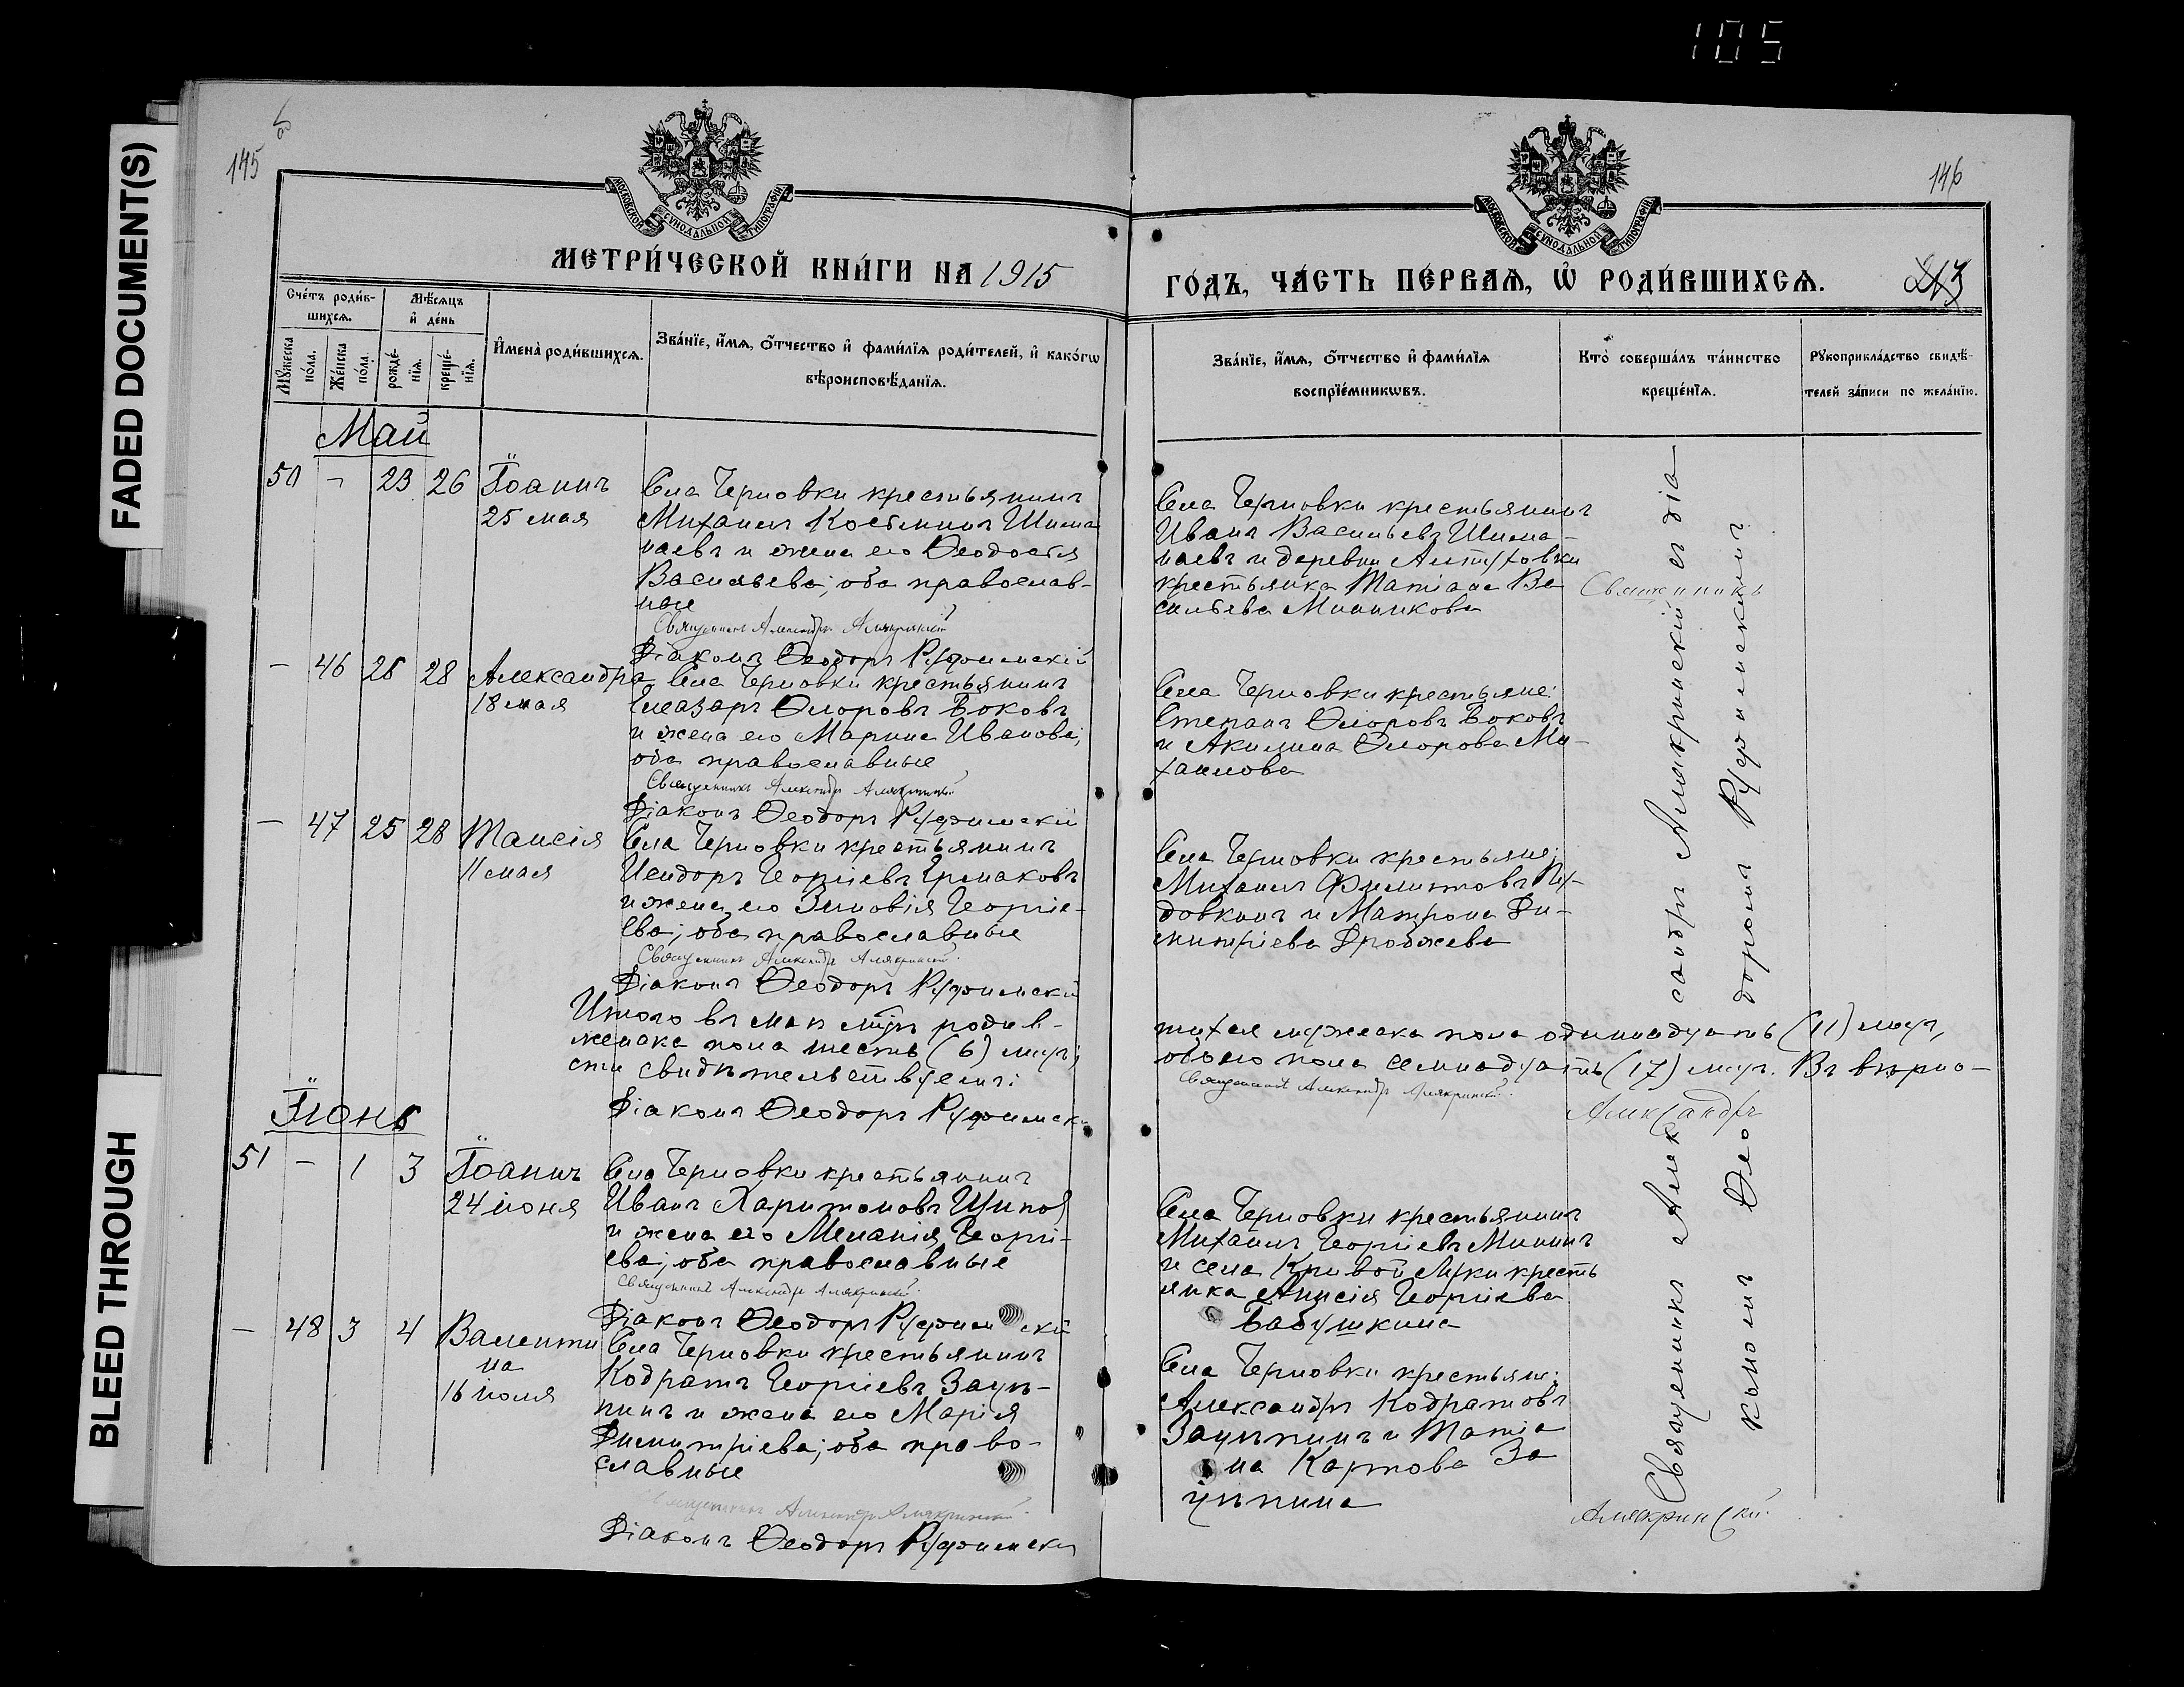 105
FADED DOCUMENT(S)
BLEED THROUGH
145
146
МОСКОВСКОЙ СУНОДАЛЬНОЙ ТИПОГРАФІИ
МОСКОВСКОЙ СУНОДАЛЬНОЙ ТИПОГРАФІИ
МЕТРИ́ЧЕСКОЙ КНИ́ГИ НА 1915
ГОДЪ, ЧА́СТЬ ПЕ́РВАѦ, Ѽ РОДИ́ВШИХСѦ.
Сче́тъ роди́в-
шихсѧ.
Мѣ́сѧцъ
и҆ де́нь
Мꙋ́жеска
по́ла.
Же́нска
по́ла.
рожде́-
нїѧ.
креще́-
нїѧ.
И҆мена̀ роди́вшихсѧ.
Зва́нїе, и҆́мѧ, ѻ҆́тчество и҆ фами́лїѧ роди́телей, и҆ како́гѡ
вѣроисповѣ́данїѧ.
Зва́нїе, и҆́мѧ, ѻ҆́тчество и҆ фами́лїѧ
воспрїе́мникѡвъ.
Кто̀ соверша́лъ та́инство
креще́нїѧ.
Рꙋкоприкла́дство свидѣ́-
телей за́писи по жела́нїю.
Май
50 – 23 26 Іоаннъ
25 мая
Села Черновки крестьянинъ
Михаилъ Косьминъ Шима
наевъ и жена его Ѳеодосія
Васильева; оба православ-
ные
Священникъ Александръ Алякринскій
Діаконъ Ѳеодоръ Руфимскій
Села Черновки крестьянинъ
Иванъ Васильевъ Шима-
наевъ и деревни
крестьянка Татіана Ва
сильева Минникова
– 46 25 28 Александра
18 мая
Села Черновки крестьянинъ
Елеазаръ Флоровъ Боковъ
и жена его Марина Иванова;
оба православные
Священникъ Александръ Алякринскій
Діаконъ Ѳеодоръ Руфимскій
Села Черновки крестьяне:
Степанъ Флоровъ Боковъ
и Акилина Флорова Ми-
хаилова
– 47 25 28 Таисія
11 мая
Села Черновки крестьянинъ
Исидоръ Георгіевъ Ермаковъ
и жена его Зиновія Георгіе-
ва; оба православные
Священникъ Александръ Алякринскій
Діаконъ Ѳеодоръ Руфимскій
Села Черновки крестьяне:
Михаилъ Филиповъ Пу-
довкинъ и Матрона Ди-
митріева Дрожжева
Итого въ маѣ мѣсяцѣ родив-
шихся мужеска пола одиннадцать (11) муж.,
женска пола шесть (6) муж.;
обоего пола семнадцать (17) муж. Въ вѣрно-
сти свидѣтельствуемъ:
Священникъ Александръ Алякринскій
Діаконъ Ѳеодоръ Руфимскій
Іюнь
51 – 1 3 Іоаннъ
24 іюня
Села Черновки крестьянинъ
Иванъ Харитоновъ
и жена его Меланія Георгі-
ева; оба православные
Священникъ Александръ Алякринскій
Діаконъ Ѳеодоръ Руфимскій
Села Черновки крестьянинъ
Михаилъ Георгіевъ Мининъ
и села Кривой Луки кресть
янка Анисія Георгіева
Бабушкина
– 48 3 4 Валенти
на
16 іюля
Села Черновки крестьянинъ
Кодратъ Георгіевъ Зацѣ-
пинъ и жена его Марія
Димитріева; оба право-
славные
Священникъ Александръ Алякринскій
Діаконъ Ѳеодоръ Руфимскій
Села Черновки крестьяне:
Александръ Кодратовъ
Зацѣпинъ и Татіа
на Карпова За
цѣпина
Священникъ Александръ Алякринскій съ діа-
кономъ Ѳеодоромъ Руфимскимъ
Священникъ
Александръ
Алякринскій